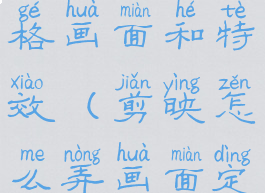 gé huà miàn hé tè
格画面和特
xiào jiǎn yìng zěn
效（剪映怎
me nòng huà miàn dìng
么弄画面定